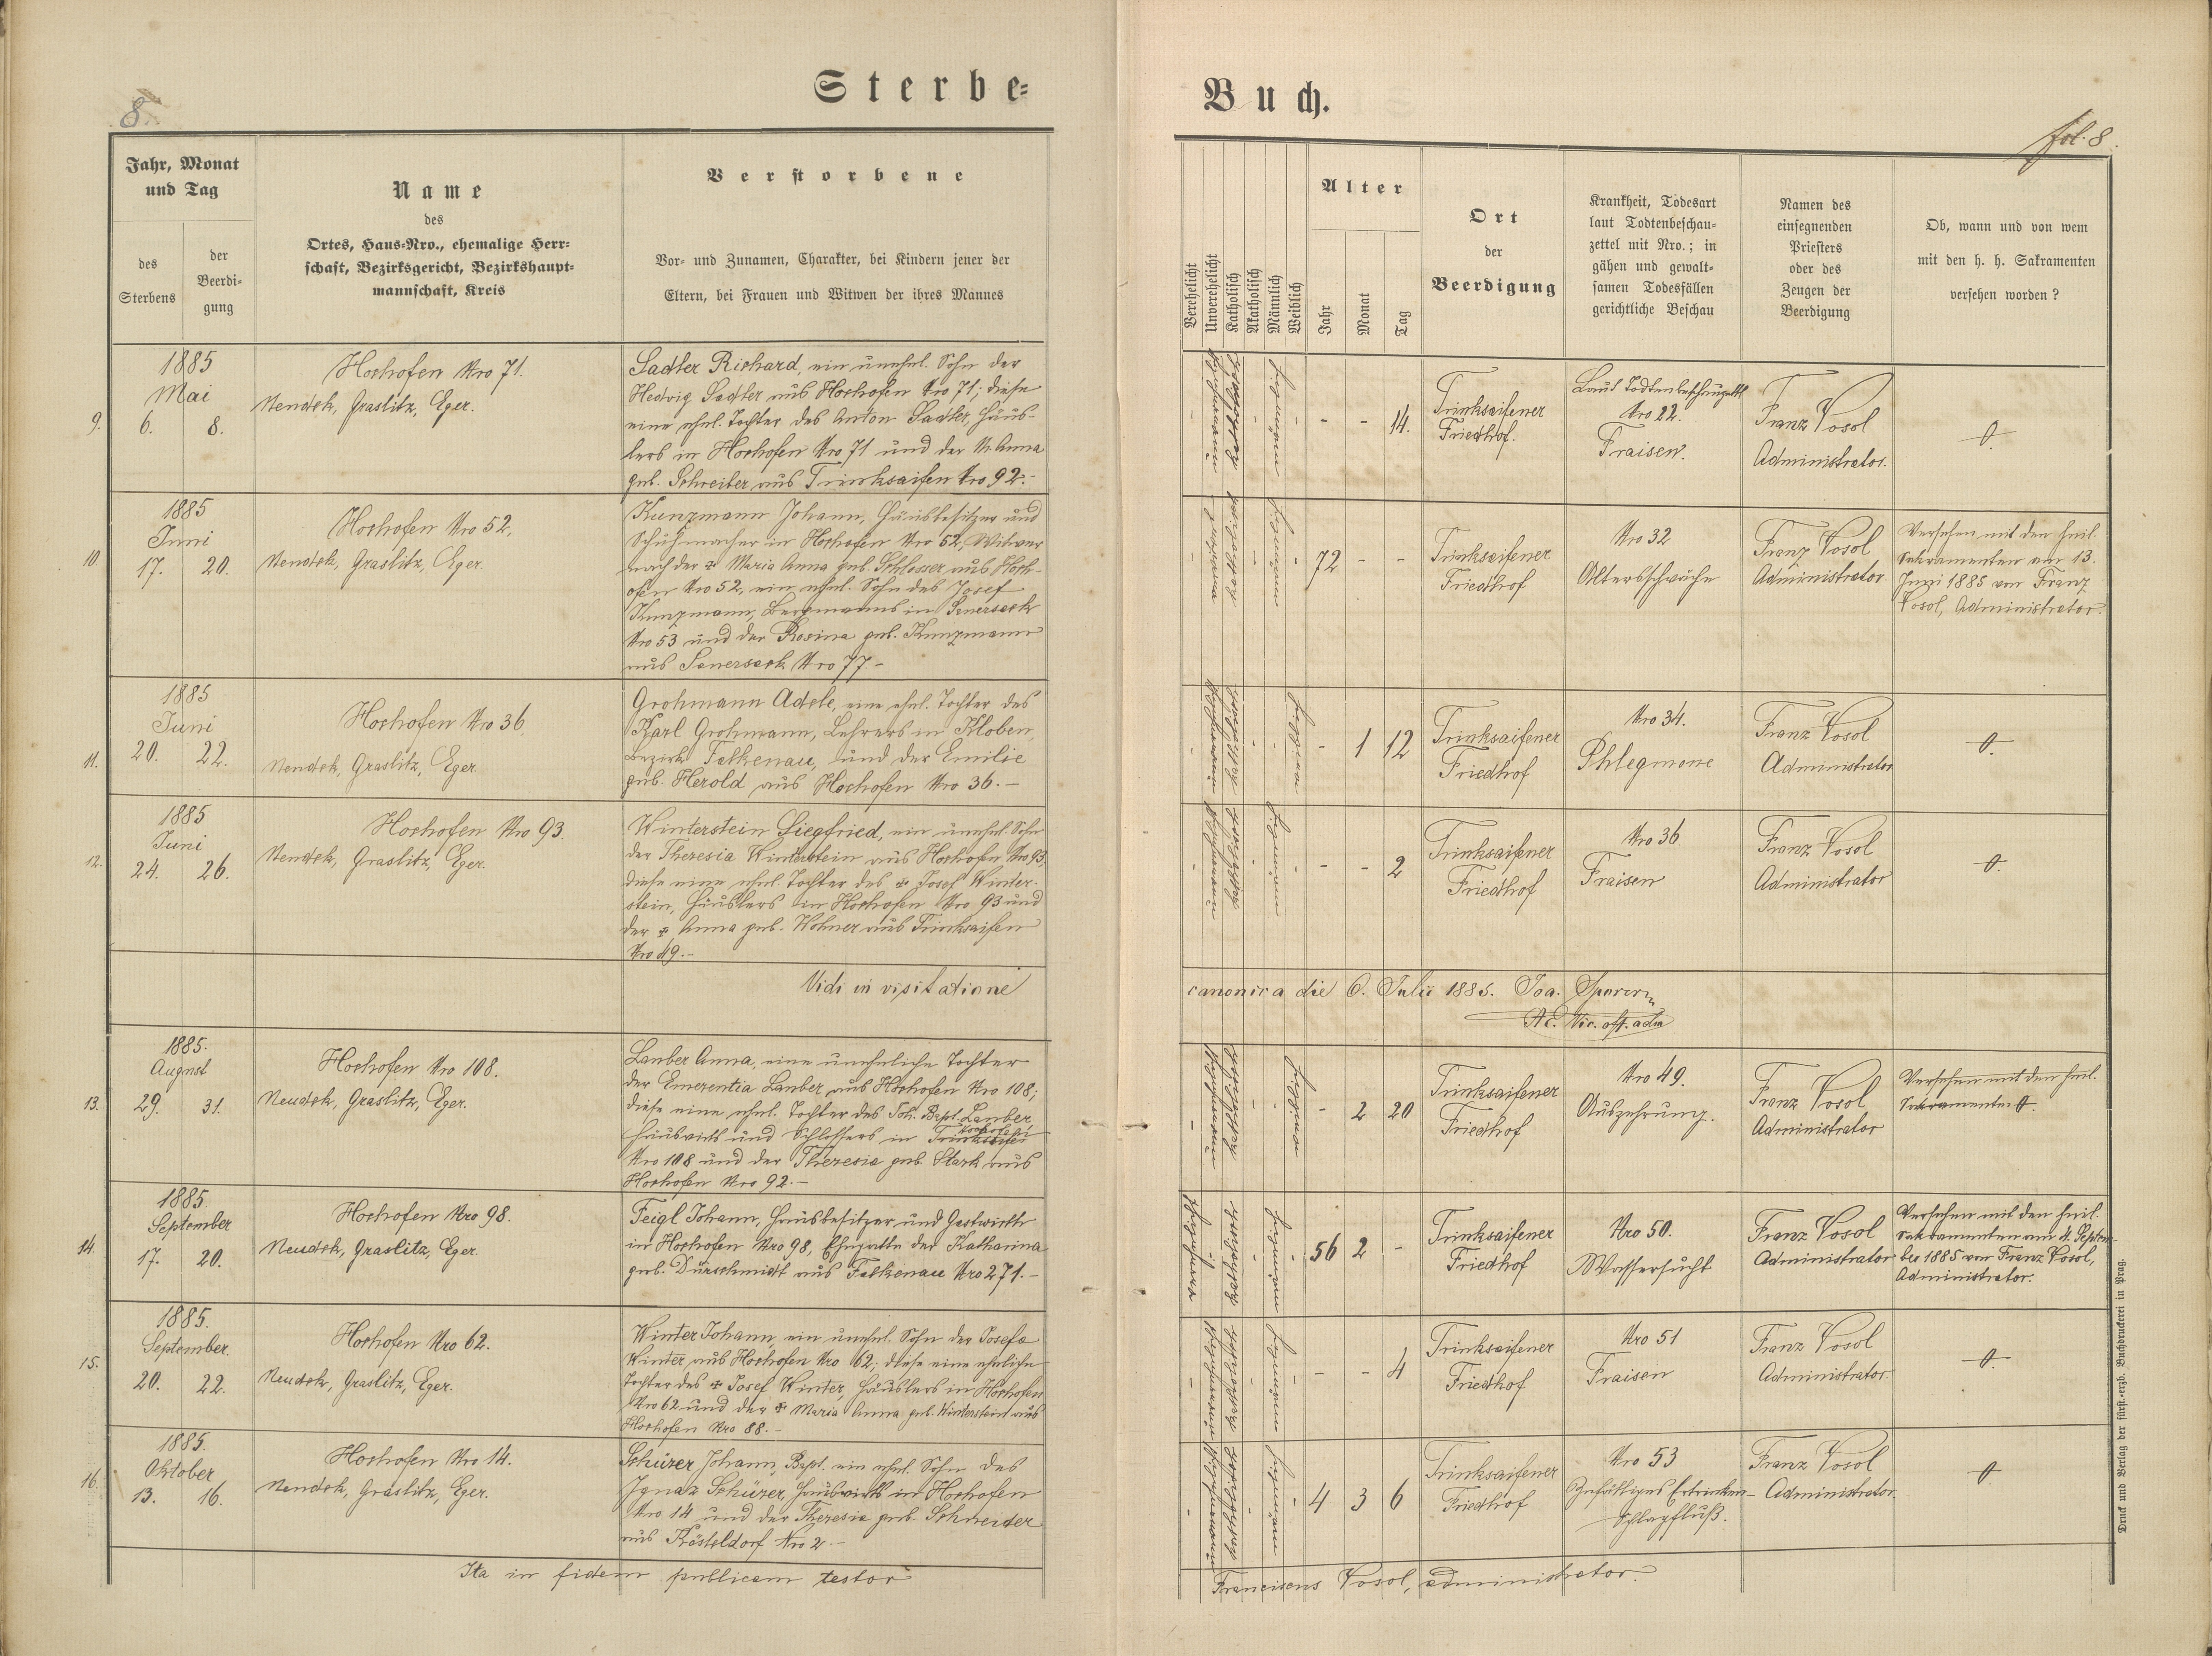 8.
Sterbe-
Buch.
fol. 8.
Jahr, Monat
und Tag
des
Sterbens
der
Beerdi-
gung
Name
des
Ortes, Haus-Nro., ehemalige Herr-
schaft, Bezirksgericht, Bezirkshaupt-
mannschaft, Kreis
Verstorbene
Vor- und Zunamen, Charakter, bei Kindern jener der
Eltern, bei Frauen und Witwen der ihres Mannes
Verehelicht
Unverehelicht
Katholisch
Akatholisch
Männlich
Weiblich
Alter
Jahr
Monat
Tag
Ort
der
Beerdigung
Krankheit, Todesart
laut Todtenbeschau-
zettel mit Nro.; in
gähen und gewalt-
samen Todesfällen
gerichtliche Beschau
Namen des
einsegnenden
Priesters
oder des
Zeugen der
Beerdigung
Ob, wann und von wem
mit den h. h. Sakramenten
versehen worden?
9.
1885
Mai
6. 8.
Hochofen Nro 71.
Neudek, Graslitz, Eger.
Sadler Richard, ein unehel. Sohn der
Hedwig Sadler aus Hochofen Nro 71; diese
eine ehel. Tochter des Anton Sadler, Häus-
lers in Hochofen Nro 71 und der M. Anna
geb. Schreiber aus Trinksaifen Nro 92.-
- - 14.
Trinksaifener
Friedhof.
Laut Todtenbeschauzettl
Nro 22.
Fraisen.
Franz Vosol
Administrator.
0.
10.
1885
Juni
17. 20.
Hochofen Nro 52,
Neudek, Graslitz, Eger.
Kunzmann Johann, Hausbesitzer und
Schuhmacher in Hochofen Nro 52, Witwer
nach der + Maria Anna geb. Schlosser aus Hoch-
ofen Nro 52, ein ehel. Sohn des Josef
Kunzmann, Bergmanns in Sauersack
Nro 53 und der Rosina geb. Kunzmann
aus Sauersack Nro 77.-
72 - -
Trinksaifener
Friedhof
Nro 32
Altersschwäche
Franz Vosol
Administrator
Versehen mit den heil.
Sakramenten am 13.
Juni 1885 von Franz
Vosol, Administrator.
11.
1885
Juni
20. 22.
Hochofen Nro 36,
Neudek, Graslitz, Eger
Grohmann Adele, eine ehel. Tochter des
Karl Grohmann, Lehrers in Kloben,
Bezirk Falkenau, und der Emilie
geb. Herold aus Hochofen Nro 36.-
- 1 12
Trinksaifener
Friedhof
Nro 34.
Phlegmone
Franz Vosol
Administrator
0.
12.
1885
Juni
24. 26.
Hochofen Nro 93.
Neudek, Graslitz, Eger.
Winterstein Siegfried, ein unehel. Sohn
der Theresia Winterstein aus Hochofen Nro 93,
diese eine ehel. Tochter des + Josef Winter-
stein, Häuslers in Hochofen Nro 93 und
der + Anna geb. Wohner aus Trinksaifen
Nro 49.-
- - 2
Trinksaifener
Friedhof
Nro 36.
Fraisen
Franz Vosol
Administrator
0.
Vidi in visitatione
canonica die 6. Julii 1885. Joa. Sporer
13.
1885.
August
29. 31.
Hochofen Nro 108.
Neudek, Graslitz, Eger.
Lauber Anna, eine uneheliche Tochter
der Emerentia Lauber aus Hochofen Nro 108;
diese eine ehel. Tochter des Joh. Bapt. Lauber,
Hauswirts und Schlossers in Trinksaifen
Hochofen
Nro 108 und der Theresia geb. Stark aus
Hochofen Nro 92.-
- 2 20
Trinksaifener
Friedhof
Nro 49.
Auszehrung.
Franz Vosol
Administrator
Versehen mit den heil.
Sakramenten 0.
14.
1885.
September
17. 20.
Hochofen Nro 98.
Neudek, Graslitz, Eger.
Feigl Johann, Hausbesitzer und Gastwirth
in Hochofen Nro 98, Ehegatte der Katharina
geb. Dürschmidt aus Falkenau Nro 271.-
56 2 -
Trinksaifener
Friedhof
Nro 50.
Wassersucht
Franz Vosol
Administrator
Versehen mit den heil.
Sakramenten am 4. Septem-
ber 1885 von Franz Vosol,
Administrator.
15.
1885.
September.
20. 22.
Hochofen Nro 62.
Neudek, Graslitz, Eger.
Winter Johann, ein unehel. Sohn der Josefa
Winter aus Hochofen Nro 62; diese eine eheliche
Tochter des + Josef Winter, Häuslers in Hochofen
Nro 62 und der + Maria Anna geb. Winterstein aus
Hochofen Nro 88.-
- - 4
Trinksaifener
Friedhof
Nro 51
Fraisen
Franz Vosol
Administrator.
0.
16.
1885.
Oktober
13. 16.
Hochofen Nro 14.
Neudek, Graslitz, Eger.
Schürer Johann, Bapt. ein ehel. Sohn des
Ignaz Schürer, Hauswirts in Hochofen
Nro 14 und der Theresia geb. Schneider
aus Kösteldorf Nro 2.-
4 3 6
Trinksaifener
Friedhof
Nro 53
Zufälliges Ertrinken-
Schlagfluß.
Franz Vosol
Administrator.
0.
Ita in fidem publicam testor
Franciscus Vosol, administrator.
Druck und Verlag der fürst.-erzb. Buchdruckerei in Prag.